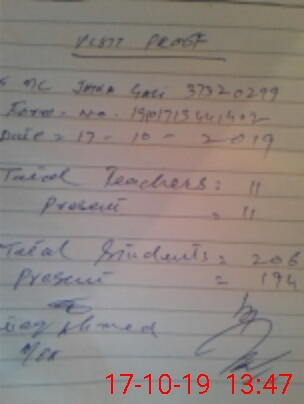 VISIT PROOF
37320299
Form. no.
Date = 17 - 10 - 2019
Total Teachers: 11
Present = 11
Total Students = 206
Present = 194
Ahmed
17-10-19 13:47